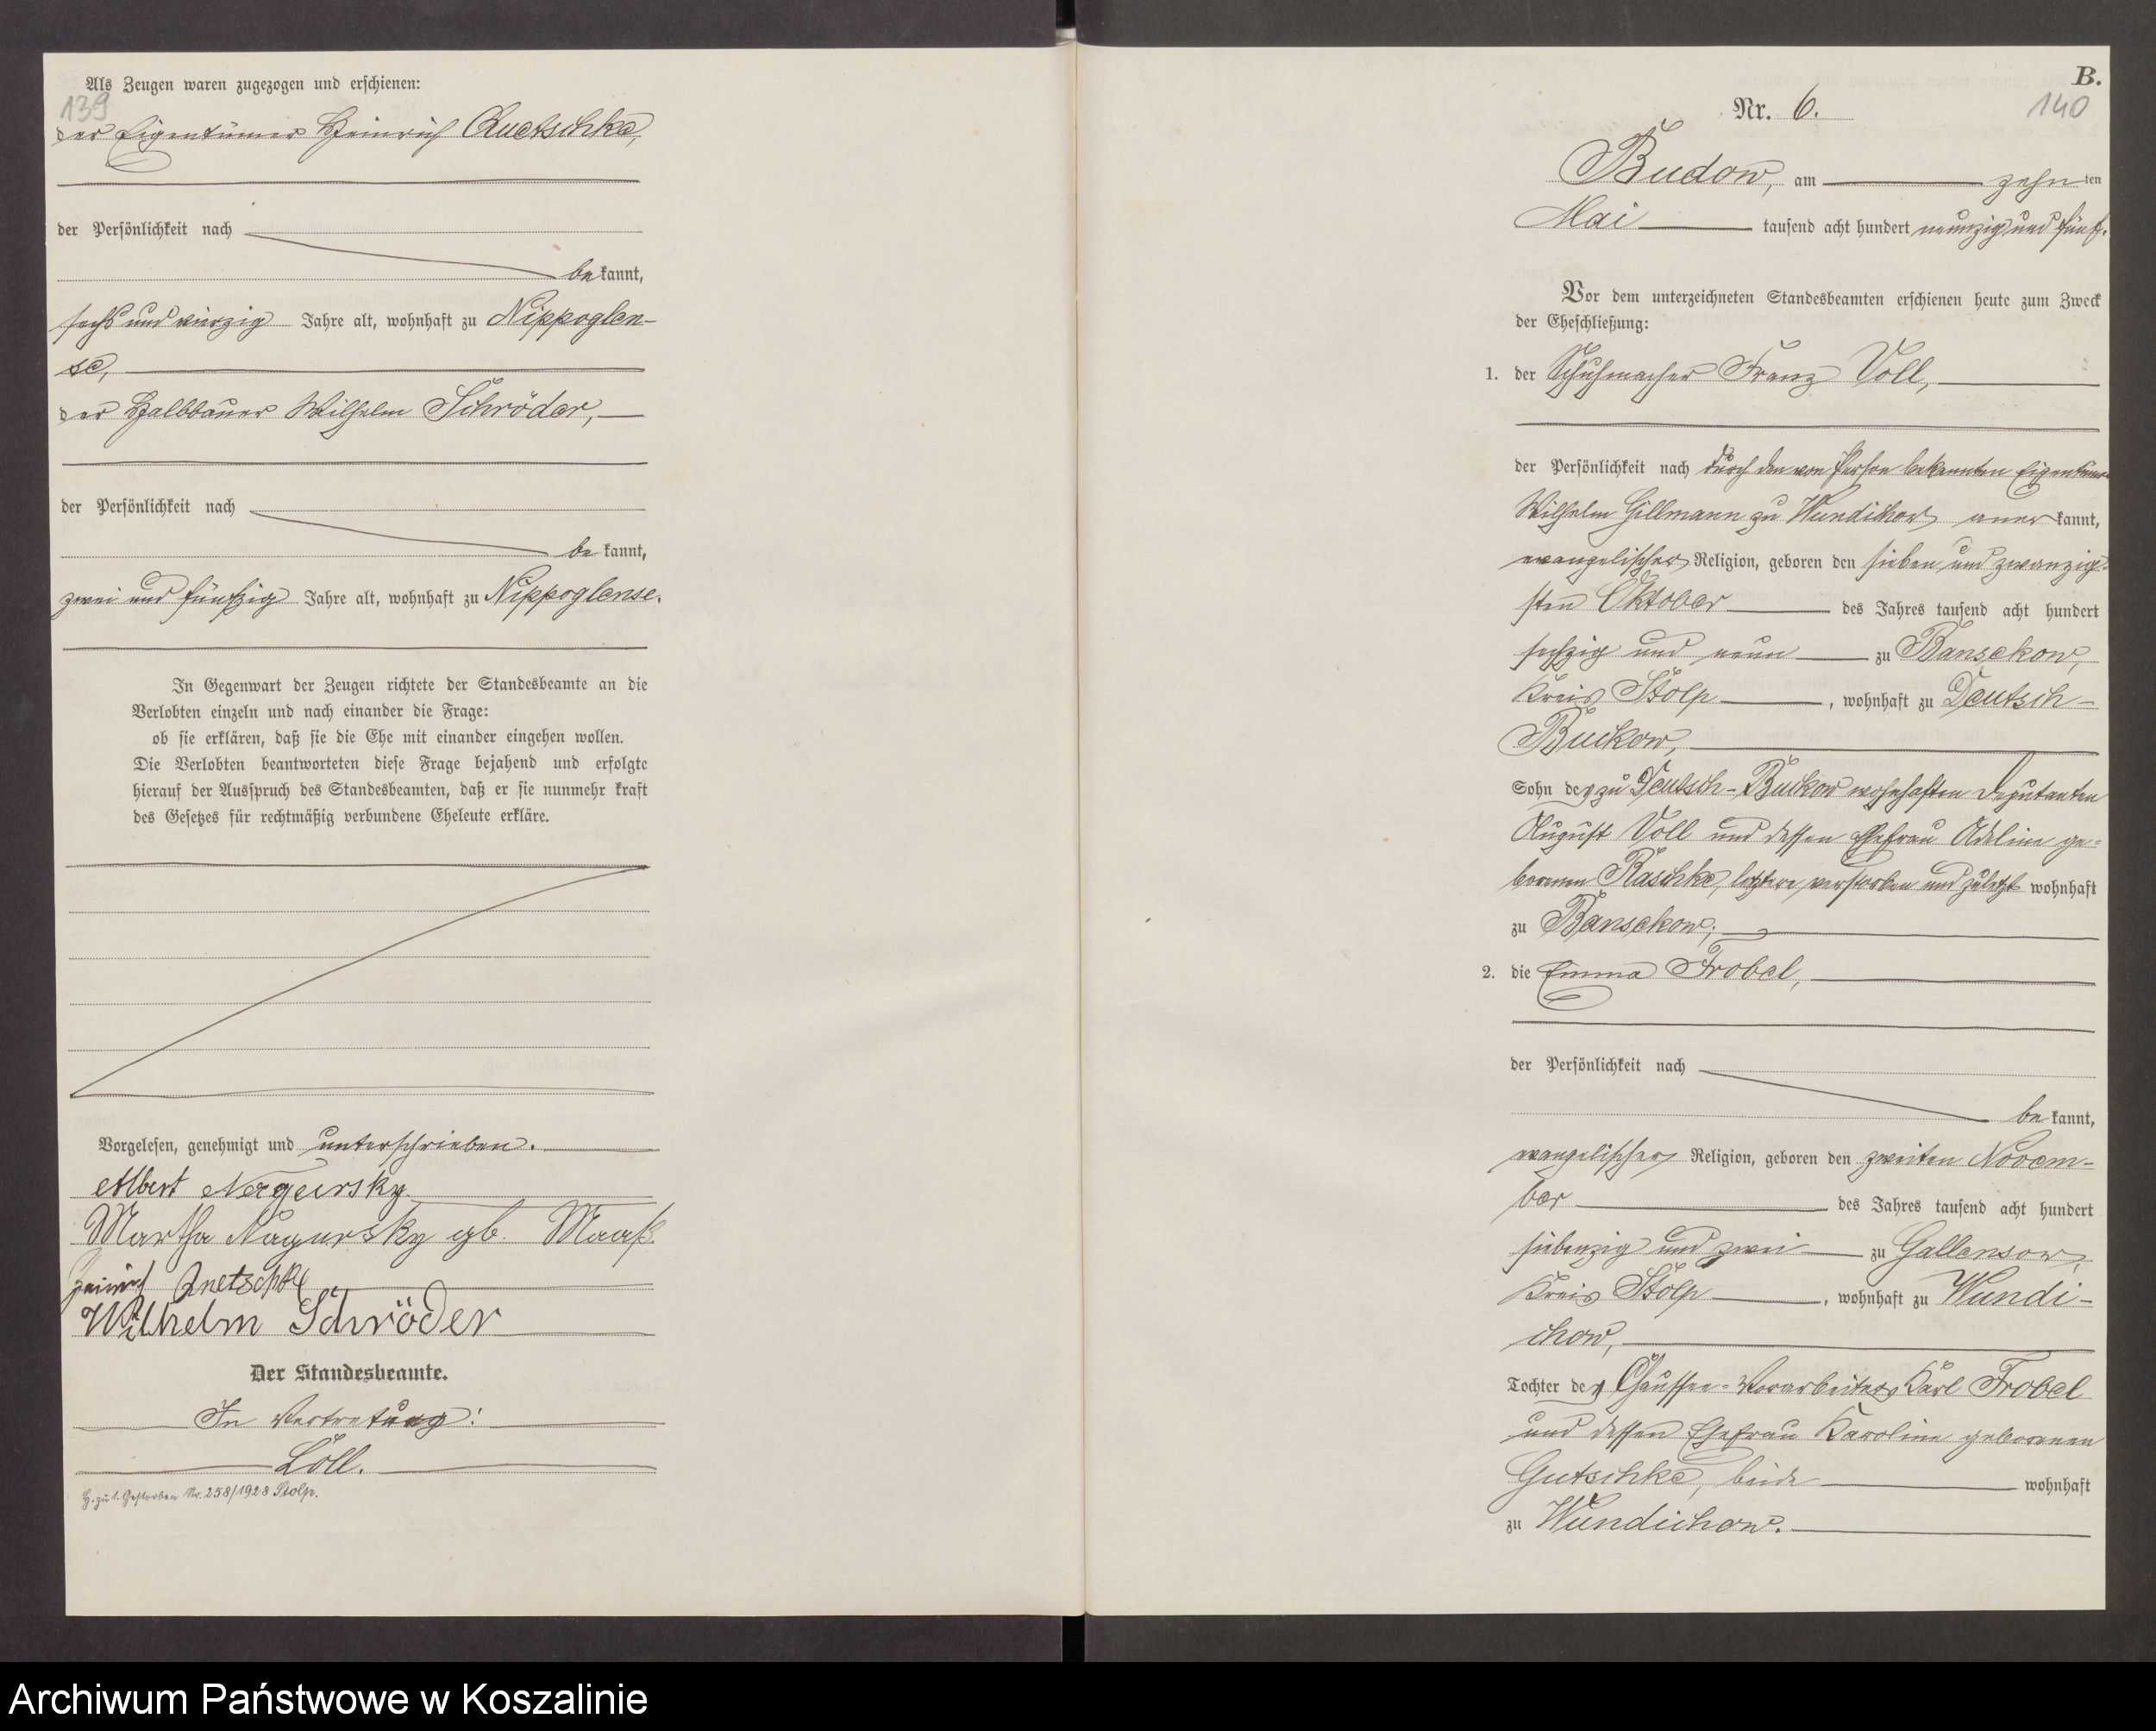 Als Zeugen waren zugezogen und erschienen:
139
der Eigentümer Heinrich Quetschke,
der Persönlichkeit nach
bekannt,
sechs und vierzig Jahre alt, wohnhaft zu Nippoglen-
se,
der Halbbauer Wilhelm Schröder,
der Persönlichkeit nach
bekannt,
zwei und fünfzig Jahre alt, wohnhaft zu Nippoglense.
In Gegenwart der Zeugen richtete der Standesbeamte an die
Verlobten einzeln und nach einander die Frage:
ob sie erklären, daß sie die Ehe mit einander eingehen wollen.
Die Verlobten beantworteten diese Frage bejahend und erfolgte
hierauf der Ausspruch des Standesbeamten, daß er sie nunmehr kraft
des Gesetzes für rechtmäßig verbundene Eheleute erkläre.
Vorgelesen, genehmigt und unterschrieben.
Albert Nagursky
Martha Nagursky gb. Maaß.
Heinrich Quetschke
Wilhelm Schröder
Der Standesbeamte.
In Vertretung:
Löll.
H. zu 1. Gestorben Nr. 258/1928 Stolp.
B.
140
Nr. 6.
Budow, am zehnten
Mai tausend acht hundert neunzig und fünf.
Vor dem unterzeichneten Standesbeamten erschienen heute zum Zweck
der Eheschließung:
1. der Schuhmacher Franz Voll,
der Persönlichkeit nach durch den von Person bekannten Eigentümer
Wilhelm Hillmann zu Wundichow anerkannt,
evangelischer Religion, geboren den sieben und zwanzig-
sten Oktober des Jahres tausend acht hundert
sechzig und neun zu Bansekow,
Kreis Stolp, wohnhaft zu Deutsch-
Buckow,
Sohn der zu Deutsch-Buckow wohnhaften Deputanten
August Voll und dessen Ehefrau Adeline ge-
borenen Raschke, letztere verstorben und zuletzt wohnhaft
zu Bansekow;
2. die Emma Frobel,
der Persönlichkeit nach
bekannt,
evangelischer Religion, geboren den zweiten Novem-
ber des Jahres tausend acht hundert
siebenzig und zwei zu Gallensow,
Kreis Stolp, wohnhaft zu Wundi-
chow,
Tochter des Chaussee-Vorarbeiters Karl Frobel
und dessen Ehefrau Karoline geborenen
Gutschke, beide wohnhaft
zu Wundichow.
Archiwum Państwowe w Koszalinie